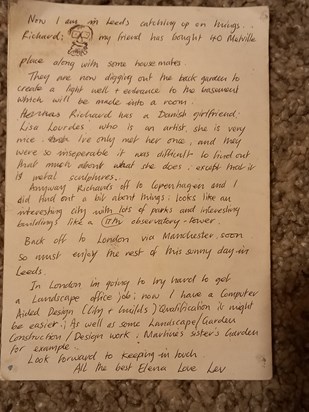 Now I am in Leeds catching up on things.
Richard: my friend has bought 40 Melville
place along with some house mates.
They are now digging out the back garden to
create a light well + entrance to the basement
which will be made into a room.
Richard has a Danish girlfriend:
Lisa Lourdes: who is an artist, she is very
nice. I've only met her once, and they
were so inseperable it was difficult to find out
that much about what she does: except that it
is metal sculptures.
Anyway Richards off to Copenhagen and I
did find out a bit about things: looks like an
interesting city with lots of parks and interesting
buildings like a observatory-tower.
Back off to London via Manchester, soon
so must enjoy the rest of this sunny day in
Leeds.
In London im going to try hard to get
a Landscape office job: now I have a Computer
Aided Design (City + Guilds) Qualification it might
be easier; As well as some Landscape/Garden
Construction / Design work: Martine's sister's Garden
for example.
Look forward to keeping in touch
All the best Elena Love Lev